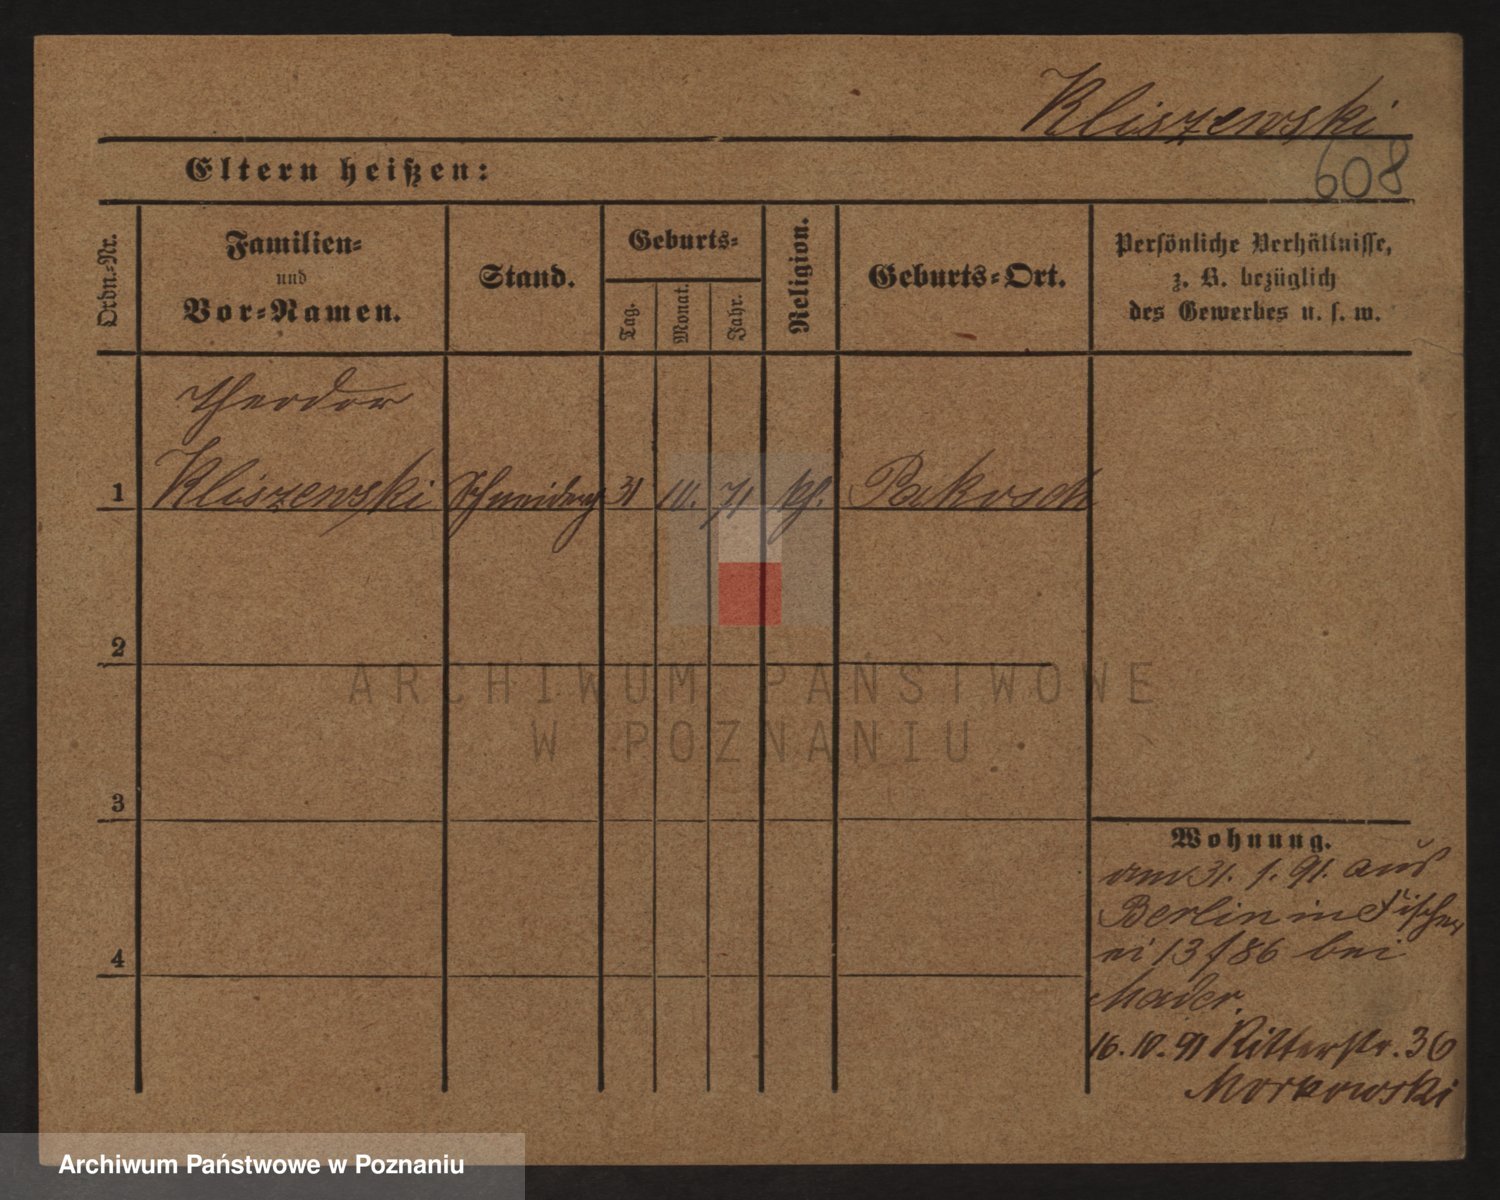 Kliszewski
608
Eltern heißen:
Ordn.-Nr.
Familien-
und
Vor-Namen.
Stand.
Geburts-
Tag.
Monat.
Jahr.
Religion.
Geburts-Ort.
Persönliche Verhältnisse,
z. B. bezüglich
des Gewerbes u. s. w.
Theodor
1 Kliszewski 31 10. 71 kth. Pakosch
2
3
4
ARCHIWUM PAŃSTWOWE
W POZNANIU
Wohnung.
am 31. 1. 91. aus
Berlin in Fischer
ei 13/86 bei
Mader.
16. 10. 91 Ritterstr. 36
Morkowski
Archiwum Państwowe w Poznaniu